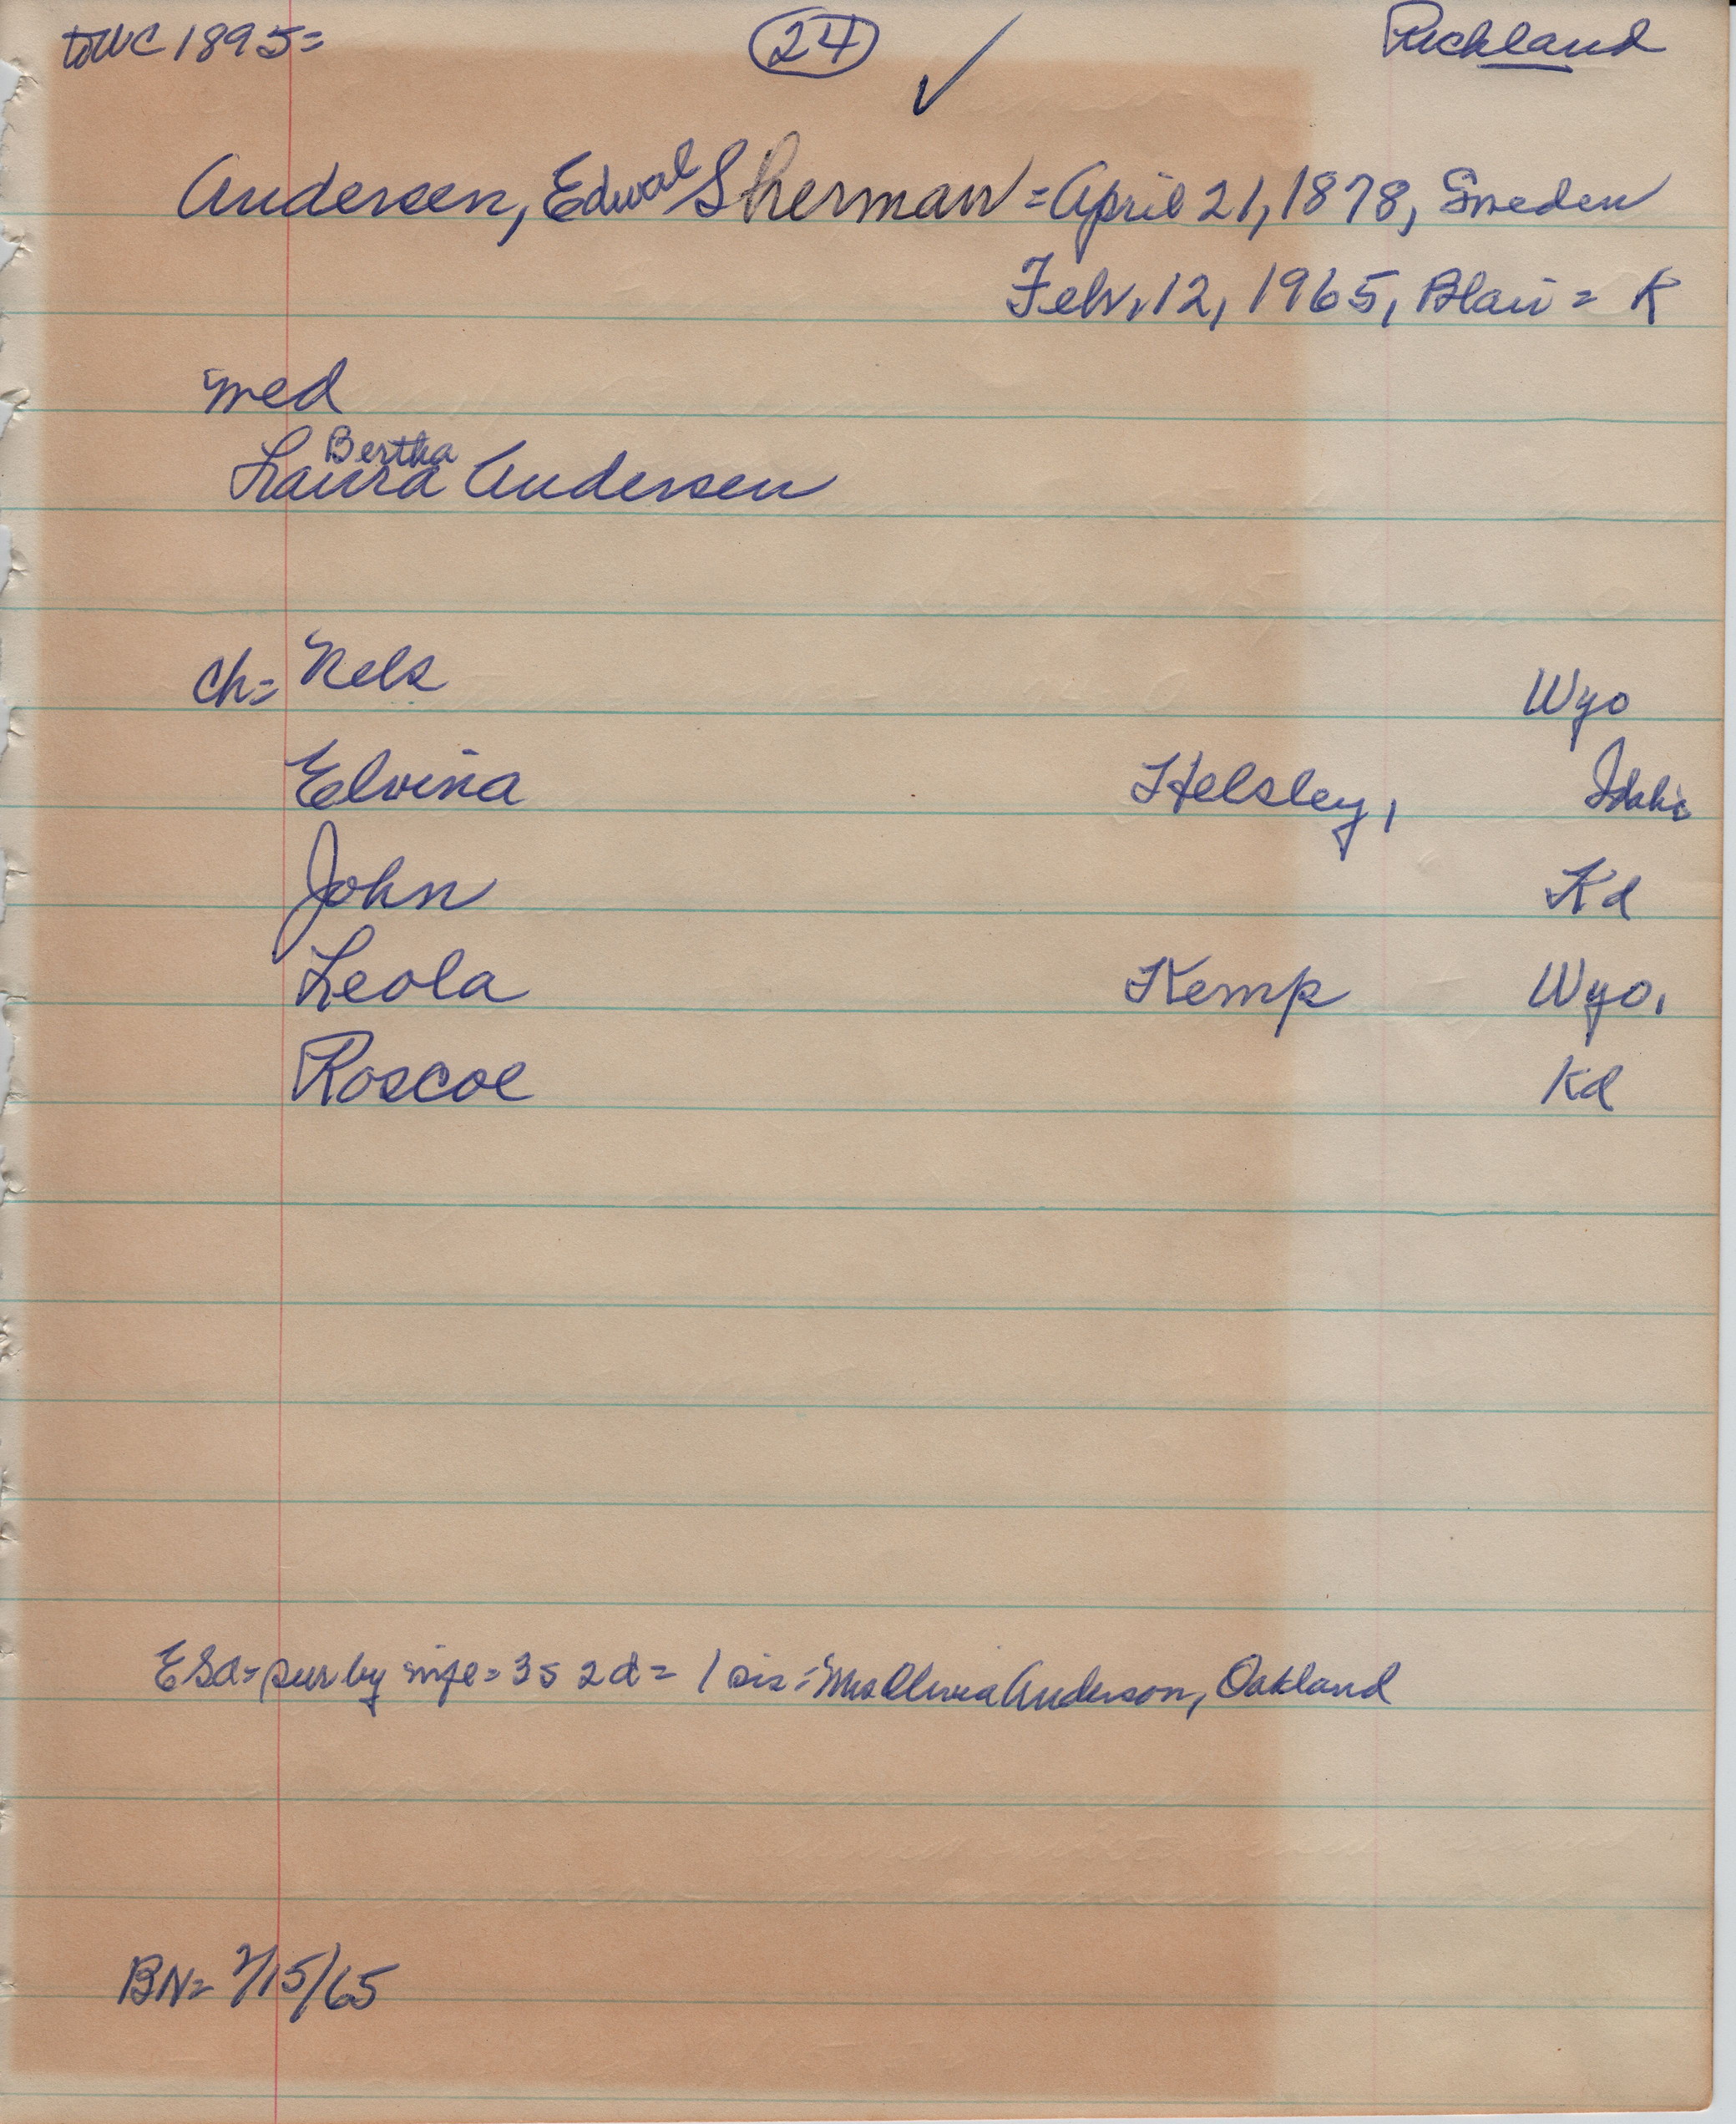 to WC 1895=
24 ✓
Richland
Andersen, Edwal Sherman = April 21, 1878, Sweden
Feb. 12, 1965, Blair = K
med
Bertha
Laura Andersen
ch= Nels Wyo
Elvina Helsley, Idaho
John Kd
Leola Kemp Wyo.
Roscoe Kd
ESA= sur by wife = 3s 2d = 1 sis = Mrs Olivia Anderson, Oakland
BN= 2/15/65